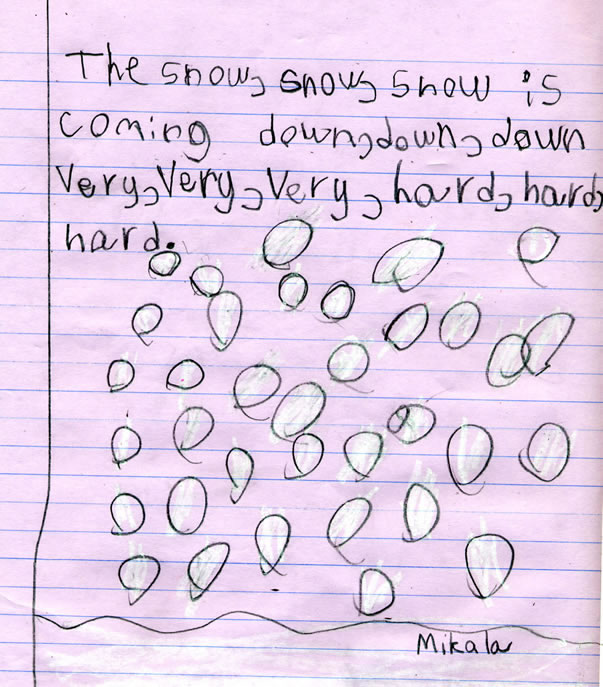 The snow, snow, snow is
coming down, down, down
Very, Very, Very, hard, hard,
hard.
Mikala